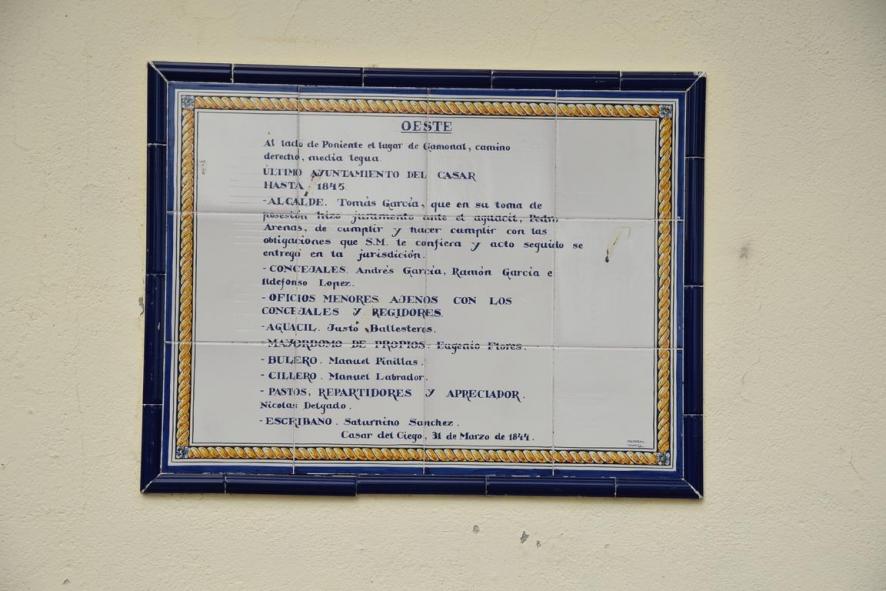 OESTE
Al lado de Poniente el lugar de Gamonal, camino
derecho, media legua.
ÚLTIMO AYUNTAMIENTO DEL CASAR
HASTA 1845.
-ALCALDE. Tomás García, que en su toma de
posesión hizo juramento ante el aguacil, Pedro
Arenas, de cumplir y hacer cumplir con las
obligaciones que S.M. le confiera y acto seguido se
entregó en la jurisdición.
-CONCEJALES. Andrés García, Ramón García e
Ildefonso Lopez.
-OFICIOS MENORES AJENOS CON LOS
CONCEJALES Y REGIDORES.
-AGUACIL. Justo Ballesteros.
-MAYORDOMO DE PROPIOS. Eugenio Flores.
-BULERO. Manuel Pinillas.
-CILLERO. Manuel Labrador.
-PASTOS, REPARTIDORES Y APRECIADOR.
Nicolas Delgado.
-ESCRIBANO. Saturnino Sanchez.
Casar del Ciego, 31 de Marzo de 1844.